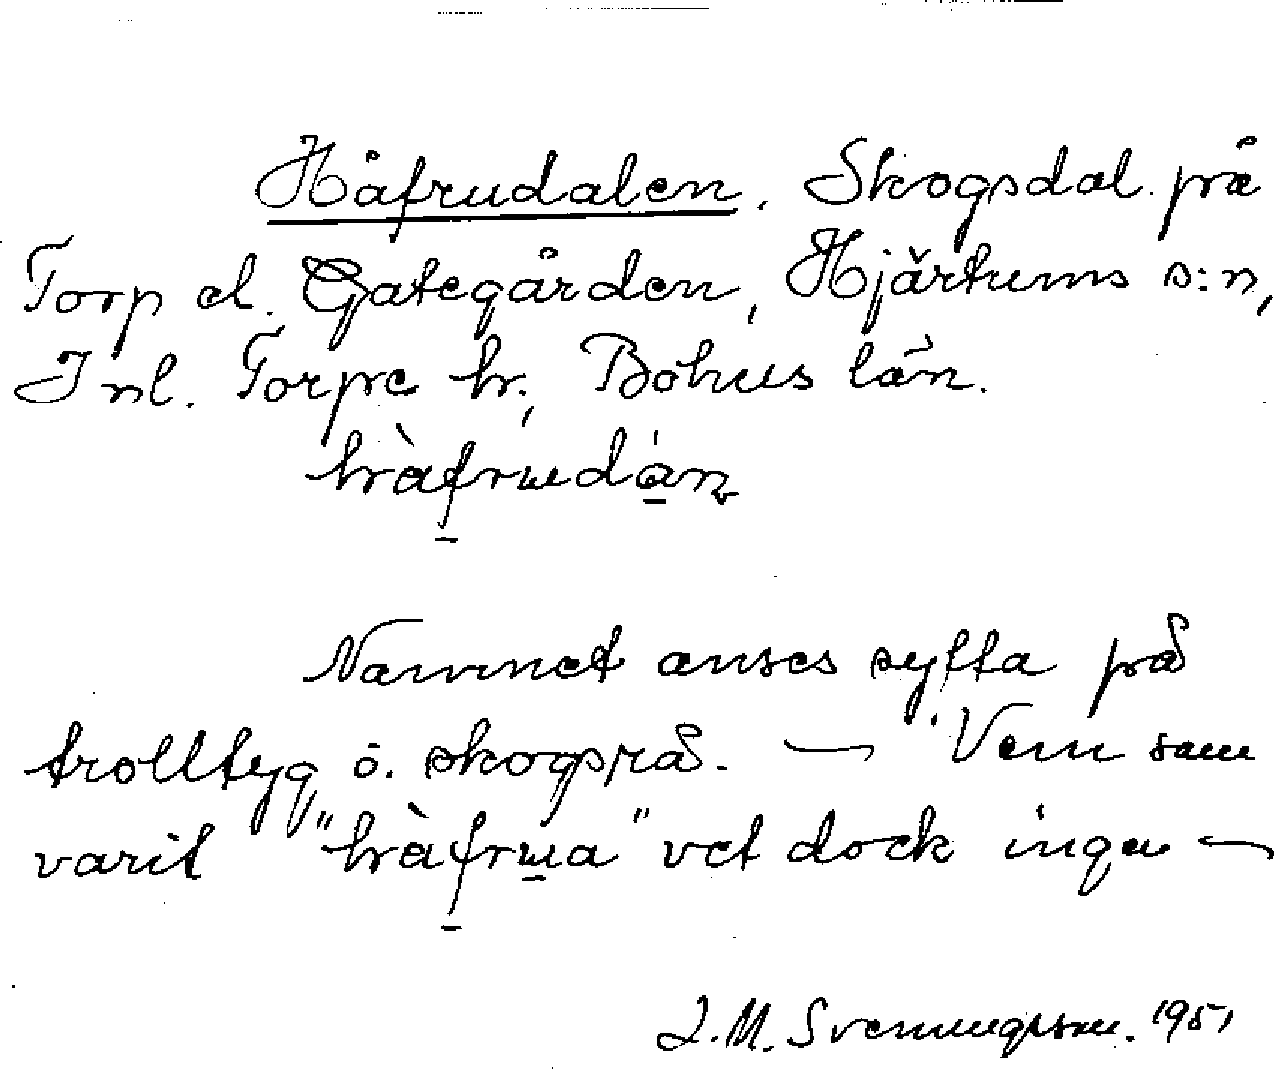 Håfrudalen. Skogsdal på
Torp el. Gategården, Hjärtums s:n,
Inl. Torpe hr., Bohus län.
hàfrudán
Namnet anses syfta på
trolltyg o. skogsrå. — Vem som
varit "hàfrua" vet dock ingen —
J. M. Svenningsson. 1951